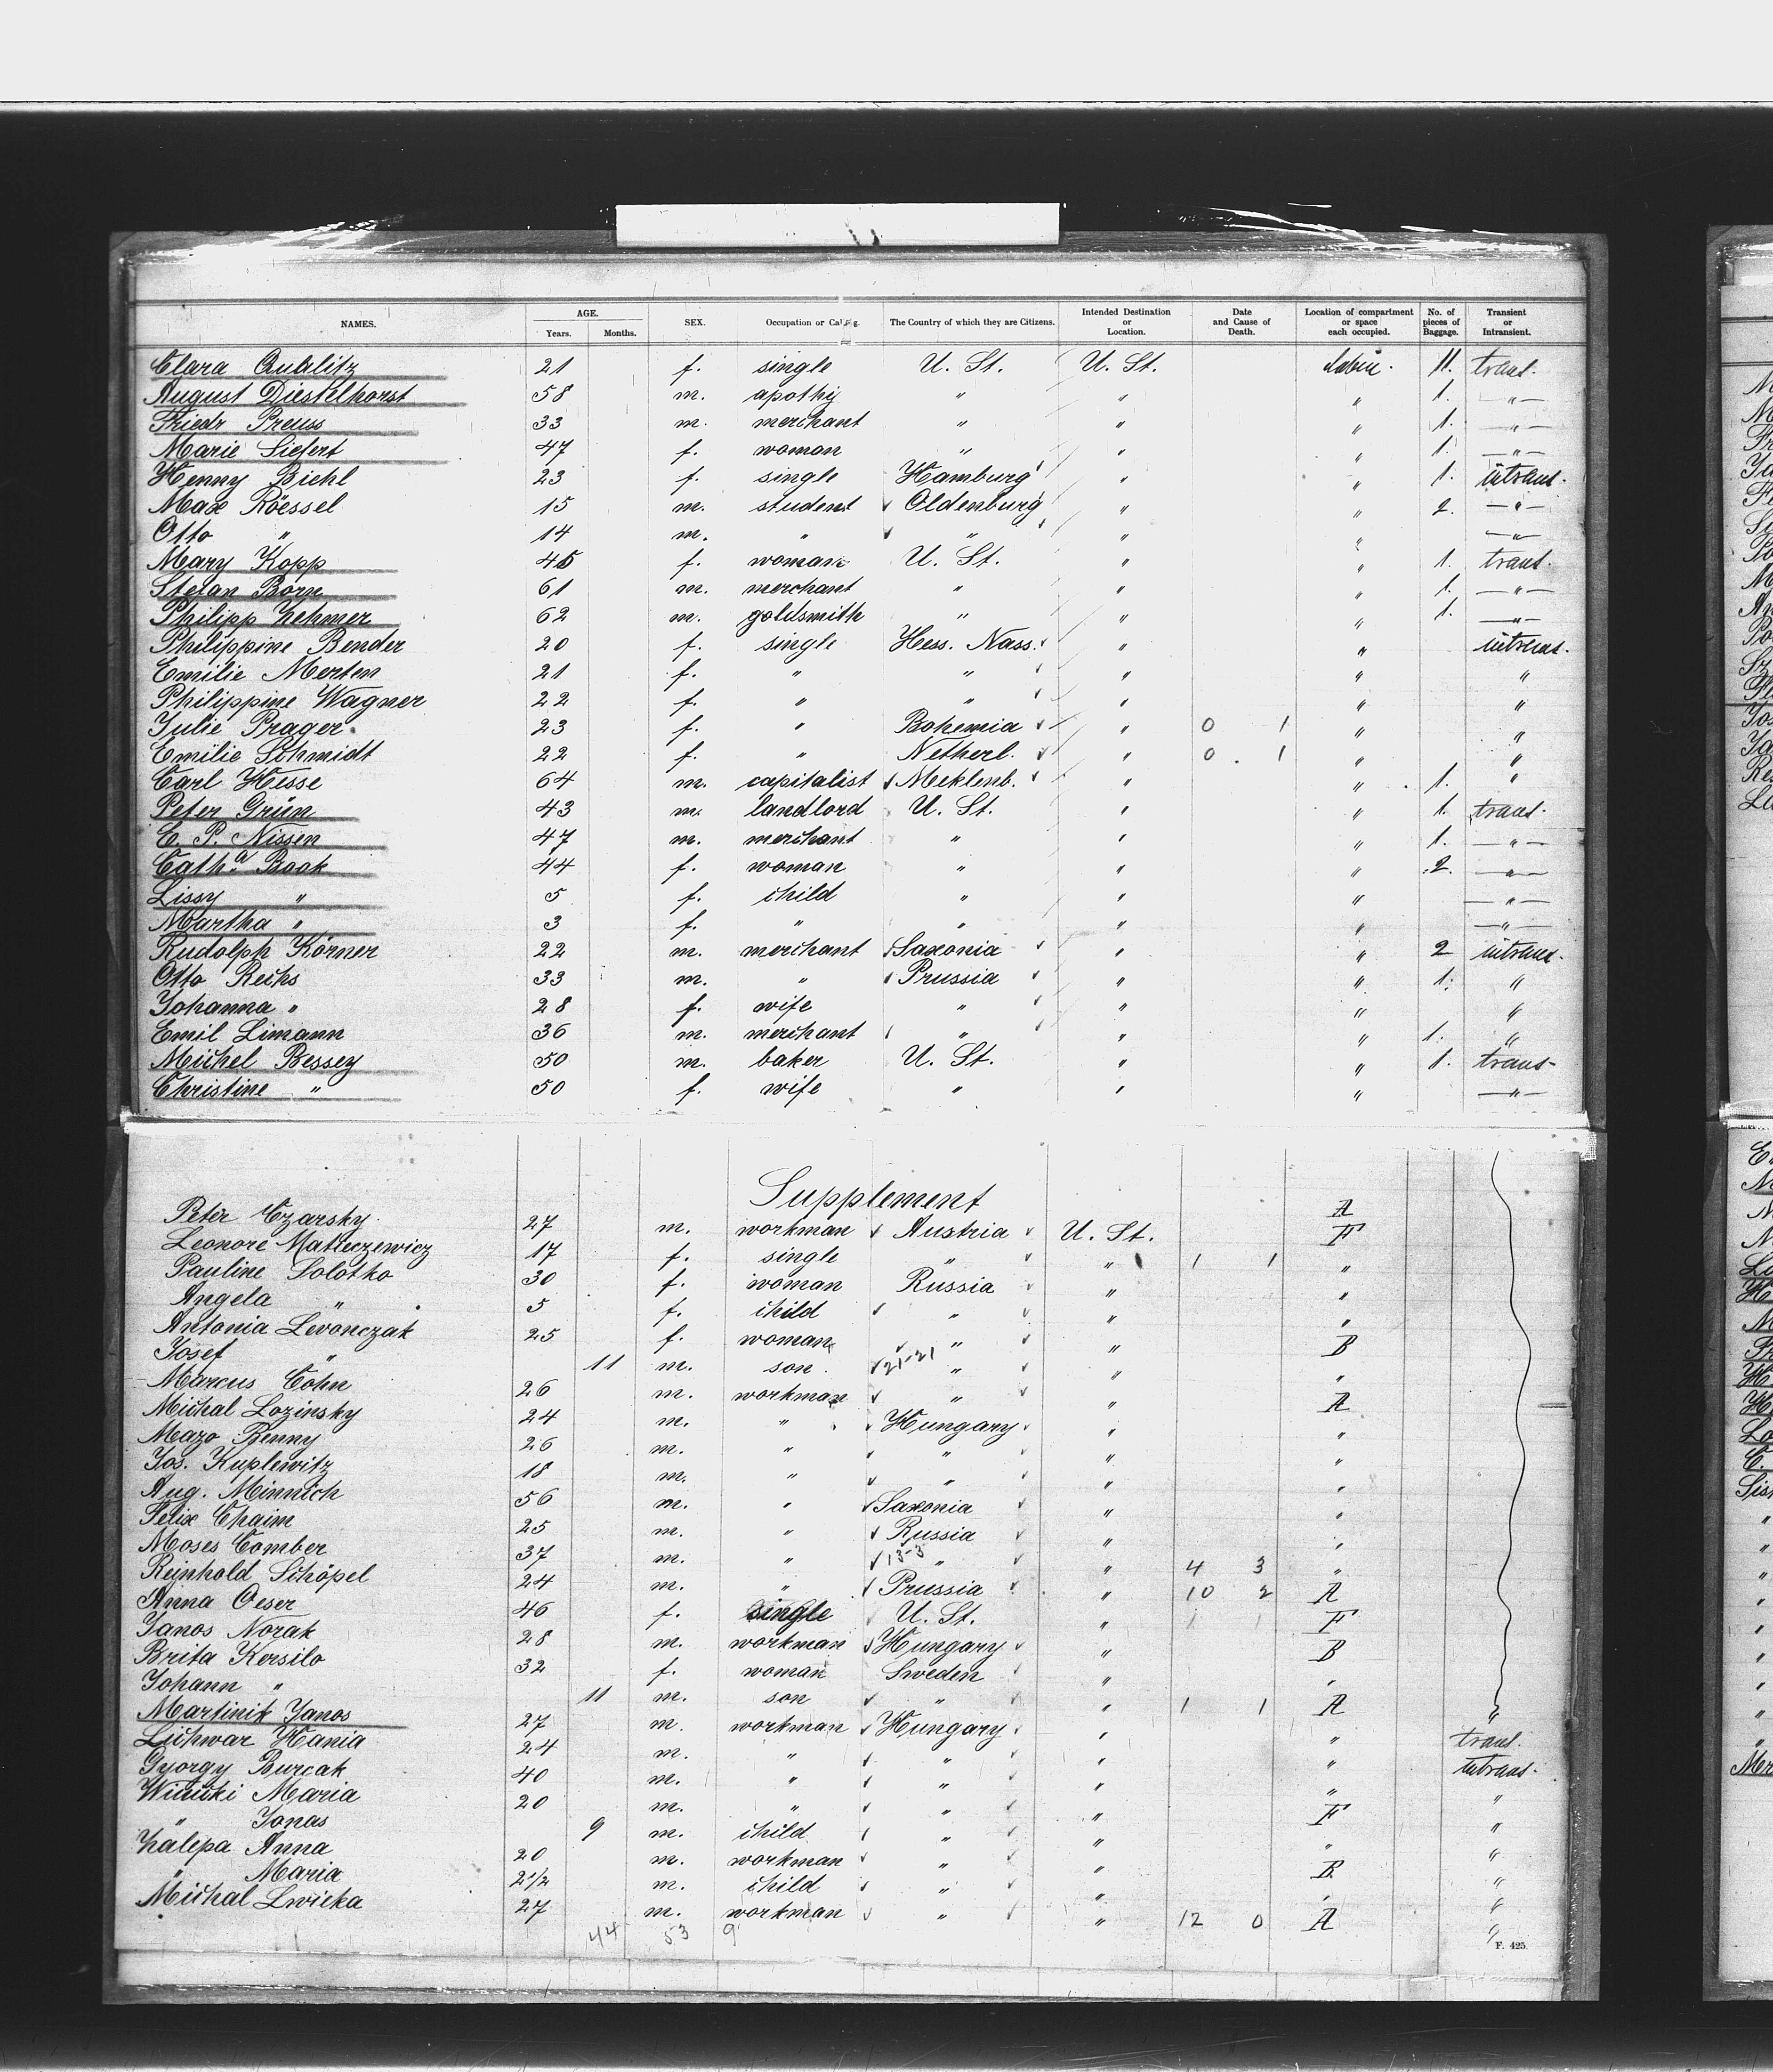 NAMES. AGE. Years. Months. SEX. Occupation or Calling. The Country of which they are Citizens. Intended Destination or Location. Date and Cause of Death. Location of compartment or space each occupied. No. of pieces of Baggage. Transient or Intransient.
Clara 21 f. single U. St. U. St. Cabin. 11. trans.
August Diestelhorst 58 m. apothy " " " 1. -"-
Friedr Preuss 33 m. merchant " " " 1. -"-
Marie Siefert 47 f. woman " " " 1. -"-
Henny Biehl 23 f. single Hamburg " " 1. intrans.
Max Röessel 15 m. student Oldenburg " " 2. -"-
Otto " 14 m. " " " " -"-
Mary Kopp 45 f. woman U. St. " " 1. trans.
Stefan Born 61 m. merchant " " " 1. -"-
Philipp Zehmer 62 m. goldsmith " " " 1. -"-
Philippine Bender 20 f. single Hess. Nass. " " intrans.
Emilie Merten 21 f. " " " " "
Philippine Wagner 22 f. " " " " "
Julie Prager 23 f. " Bohemia " 0 1 " "
Emilie Schmidt 22 f. " Netherl. " 0 1 " "
Carl Hesse 64 m. capitalist Meklenb. " " 1. "
Peter Grün 43 m. landlord U. St. " " 1. trans.
C. P. Nissen 47 m. merchant " " " 1. -"-
Catha. Book 44 f. woman " " " 2. -"-
Lissy " 5 f. child " " " -"-
Martha " 3 f. " " " " -"-
Rudolph Körner 22 m. merchant Saxonia " " 2 intrans.
Otto Reihs 33 m. " Prussia " " 1. "
Johanna " 28 f. wife " " " "
Emil Limann 36 m. merchant " " " 1. "
Michel Bessey 50 m. baker U. St. " " 1. trans-
Christine " 50 f. wife " " " -"-
Supplement
Peter Czarsky 27 m. workman Austria U. St. A
Leonore Mateczewicz 17 f. single " " 1 1 F
Pauline Solotko 30 f. woman Russia " "
Angela " 5 f. child " " "
Antonia Levonczak 25 f. woman " " "
Josef " 11 m. son 21-21 " " B
Marcus Cohn 26 m. workman " " "
Michal Lozinsky 24 m. " Hungary " A
Mazo Benny 26 m. " " " "
Jos. Kuplewitz 18 m. " " " "
Aug. Minnich 56 m. " Saxonia " "
Felix Chaim 25 m. " Russia " "
Moses Comber 37 m. " 13-3 " " 4 3 "
Reinhold Schöpel 24 m. " Prussia " 10 2 A
Anna Oeser 46 f. single U. St. " 1 1 F
Janos Norak 28 m. workman Hungary " B
Brita Kersilo 32 f. woman Sweden " "
Johann " 11 m. son " " 1 1 A
Martinik Janos 27 m. workman Hungary " " "
Lichwar Hania 24 m. " " " " trans.
Gyorgy Burcak 40 m. " " " " intrans.
Maria 20 m. " " " F "
" Jonas 9 m. child " " " "
Zalepa Anna 20 m. workman " " B "
" Maria 2 1/2 m. child " " " "
Michal Lwicka 27 m. workman " " 12 0 A "
44 53 9
F. 425.